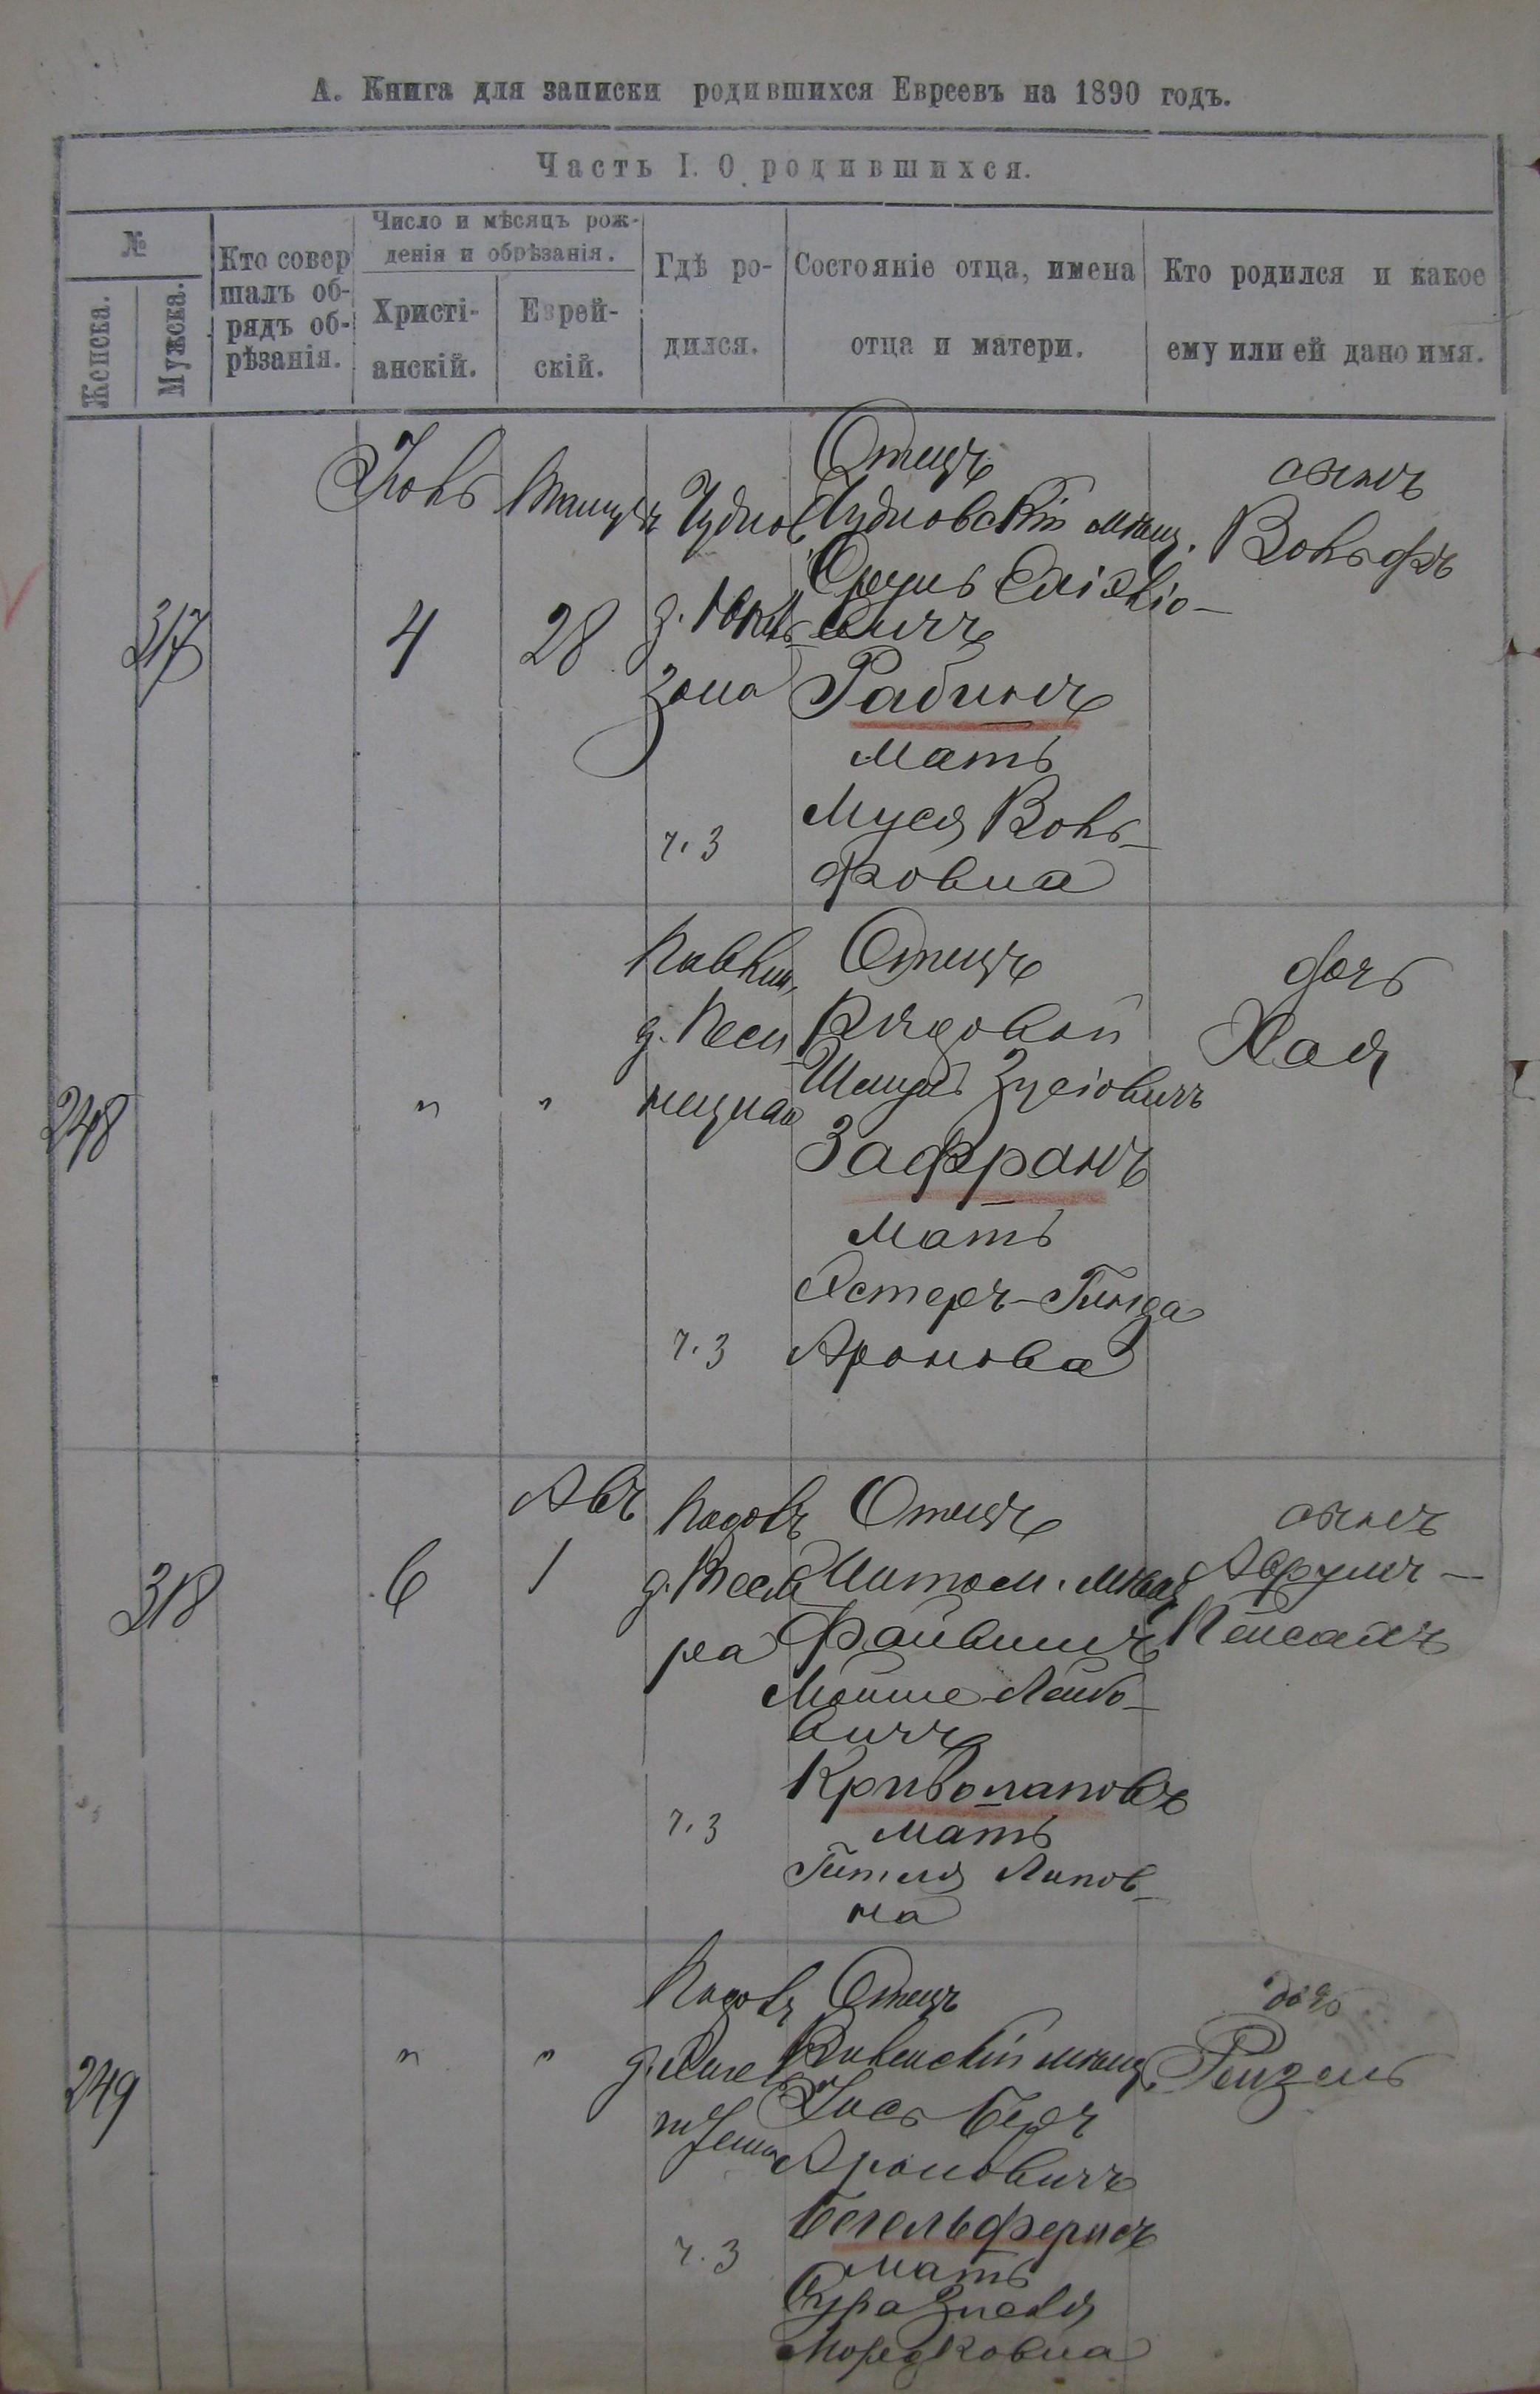 А. Книга для записки родившихся Евреевъ на 1890 годъ.
Часть I. О родившихся.
№
Женска.
Мужска.
Кто совер
шалъ об-
рядъ об-
рѣзанія.
Число и мѣсяцъ рож-
денія и обрѣзанія.
Христі-
анскій.
Еврей-
скій.
Гдѣ ро-
дился.
Состояніе отца, имена
отца и матери.
Кто родился и какое
ему или ей дано имя.
317
Іюль
4
28
Чуднов
зона
ч. 3
Отецъ
Чудновскій мѣщ.
вичъ
Рабинъ
Мать
Муся Воль-
фовна
сынъ
Вольфъ
248
"
"
ч. 3
Отецъ
Рядовой
Зусіовичъ
Зафранъ
Мать
Эстеръ-Гинда
Аронова
дочь
Хая
318
6
Авъ
1
ра
ч. 3
Отецъ
Житом. мѣщ
Файвишъ
Мойше-Лейбо-
вичъ
Криволаповъ
Мать
Гитля Липов-
на
сынъ
Аврумъ-
Пейсахъ
249
"
"
ч. 3
Отецъ
Ровенскій мѣщ.
Іось Беръ
Ароновичъ
Бегельферисъ
Мать
Сура
Мордковна
дочь
Рейзель